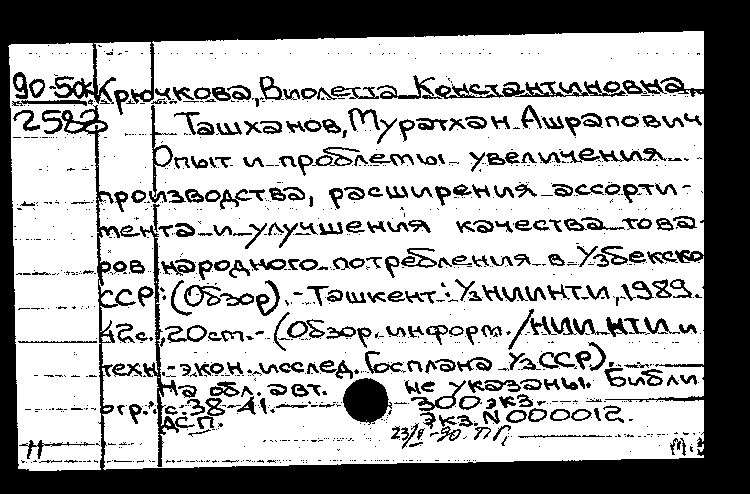 90-50к Крючкова, Виолетта Константиновна,
2588 Ташханов, Муратхан Ашрапович
Опыт и проблемы увеличения
производства, расширения ассорти-
мента и улучшения качества това-
ров народного потребления в Узбекско
ССР: (Обзор). - Ташкент: УзНИИНТИ, 1989.
42с.; 20см. - (Обзор. информ. / НИИ НТИ и
техн.-экон. исслед. Госплана УзССР).
На обл. авт. не указаны. Библи-
огр.: с. 38-41. 300 экз.
ДСП. Экз. N 000012.
-90. П
11